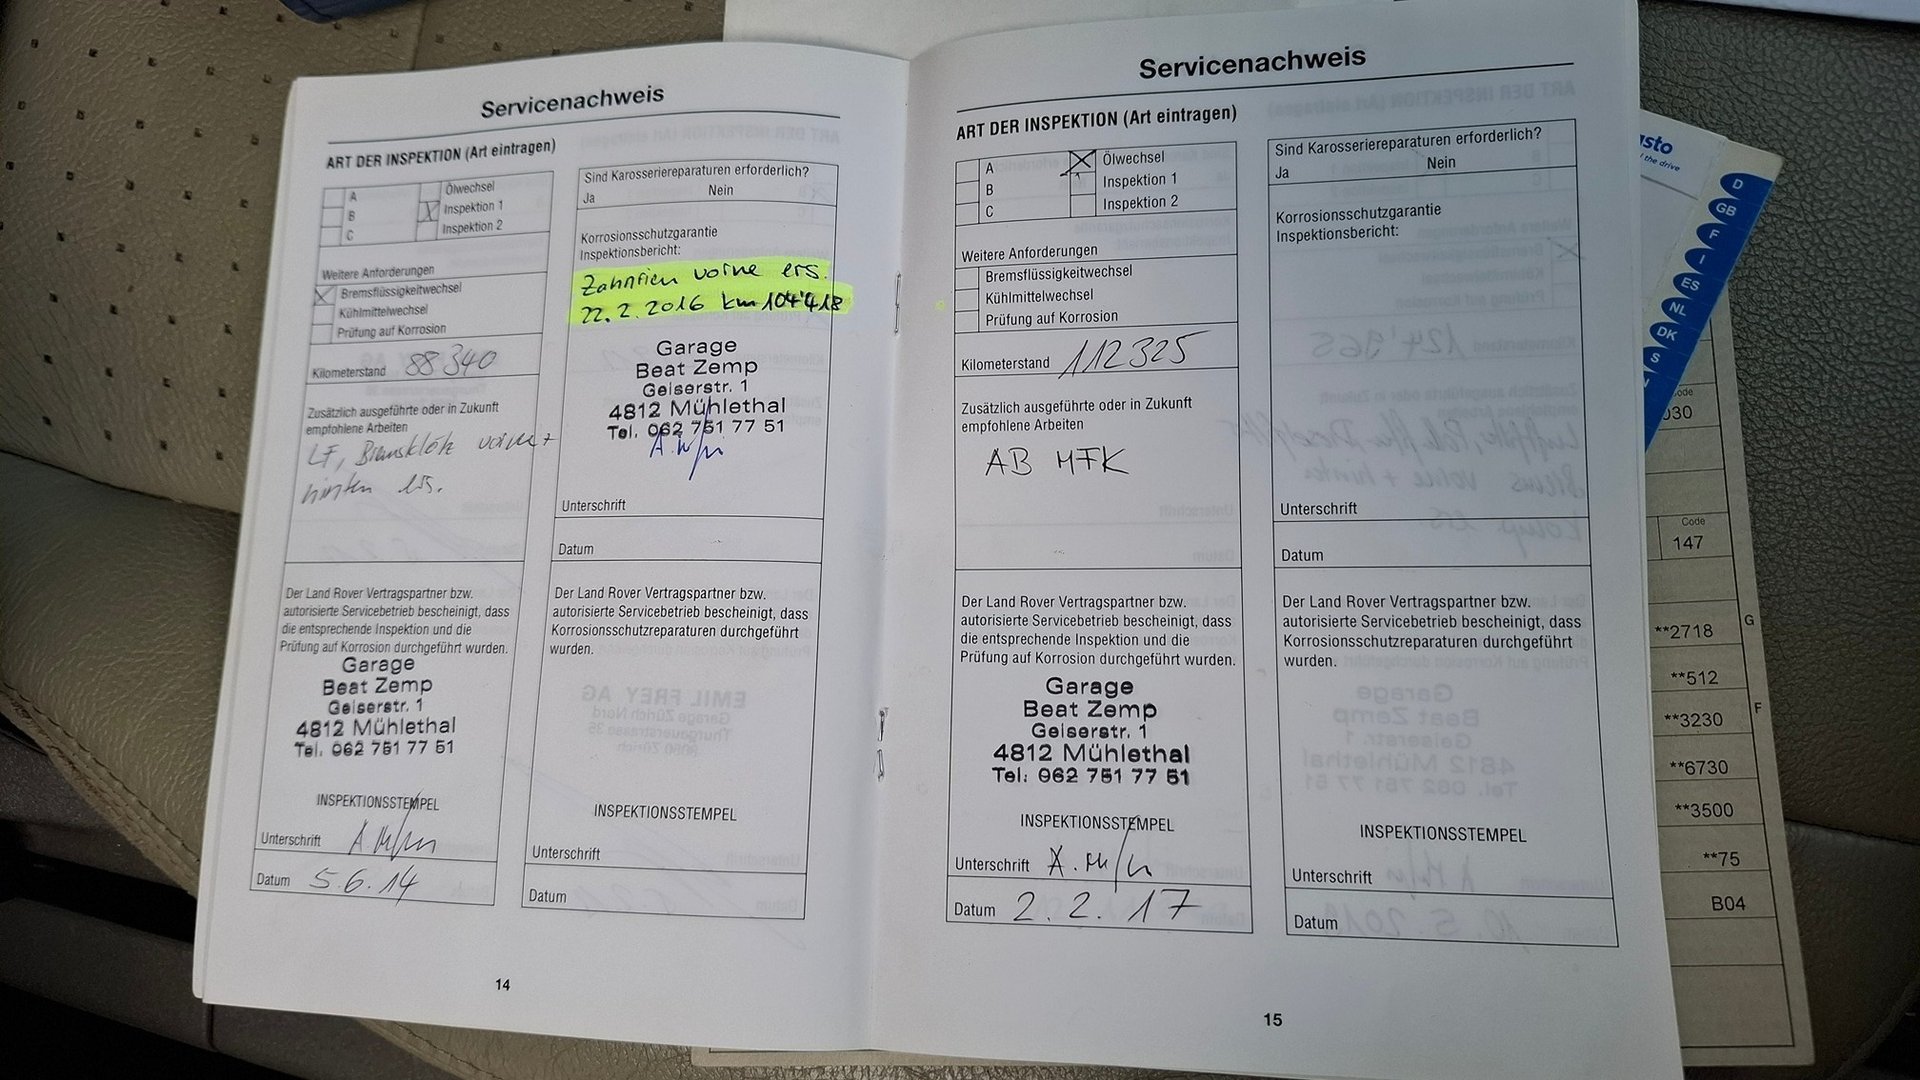 Servicenachweis
ART DER INSPEKTION (Art eintragen)
A
B
C
Ölwechsel
X Inspektion 1
Inspektion 2
Weitere Anforderungen
X Bremsflüssigkeitwechsel
Kühlmittelwechsel
Prüfung auf Korrosion
Kilometerstand 88340
Zusätzlich ausgeführte oder in Zukunft
empfohlene Arbeiten
LF, Bremsklötze vorne +
hinten ers.
Der Land Rover Vertragspartner bzw.
autorisierte Servicebetrieb bescheinigt, dass
die entsprechende Inspektion und die
Prüfung auf Korrosion durchgeführt wurden.
Garage
Beat Zemp
Geiserstr. 1
4812 Mühlethal
Tel. 062 751 77 51
INSPEKTIONSSTEMPEL
Unterschrift
Datum 5.6.14
Sind Karosseriereparaturen erforderlich?
Ja Nein
Korrosionsschutzgarantie
Inspektionsbericht:
vorne ers.
22.2.2016 km 104'418
Garage
Beat Zemp
Geiserstr. 1
4812 Mühlethal
Tel. 062 751 77 51
Unterschrift
Datum
Der Land Rover Vertragspartner bzw.
autorisierte Servicebetrieb bescheinigt, dass
Korrosionsschutzreparaturen durchgeführt
wurden.
INSPEKTIONSSTEMPEL
Unterschrift
Datum
14
Servicenachweis
ART DER INSPEKTION (Art eintragen)
A
B
C
X Ölwechsel
Inspektion 1
Inspektion 2
Weitere Anforderungen
Bremsflüssigkeitwechsel
Kühlmittelwechsel
Prüfung auf Korrosion
Kilometerstand 112325
Zusätzlich ausgeführte oder in Zukunft
empfohlene Arbeiten
AB MFK
Der Land Rover Vertragspartner bzw.
autorisierte Servicebetrieb bescheinigt, dass
die entsprechende Inspektion und die
Prüfung auf Korrosion durchgeführt wurden.
Garage
Beat Zemp
Geiserstr. 1
4812 Mühlethal
Tel: 062 751 77 51
INSPEKTIONSSTEMPEL
Unterschrift
Datum 2.2.17
Sind Karosseriereparaturen erforderlich?
Ja Nein
Korrosionsschutzgarantie
Inspektionsbericht:
Unterschrift
Datum
Der Land Rover Vertragspartner bzw.
autorisierte Servicebetrieb bescheinigt, dass
Korrosionsschutzreparaturen durchgeführt
wurden.
INSPEKTIONSSTEMPEL
Unterschrift
Datum
15
the drive
D
GB
F
I
ES
NL
DK
S
Code
147
**2718
G
**512
F
**3230
**6730
**3500
**75
B04